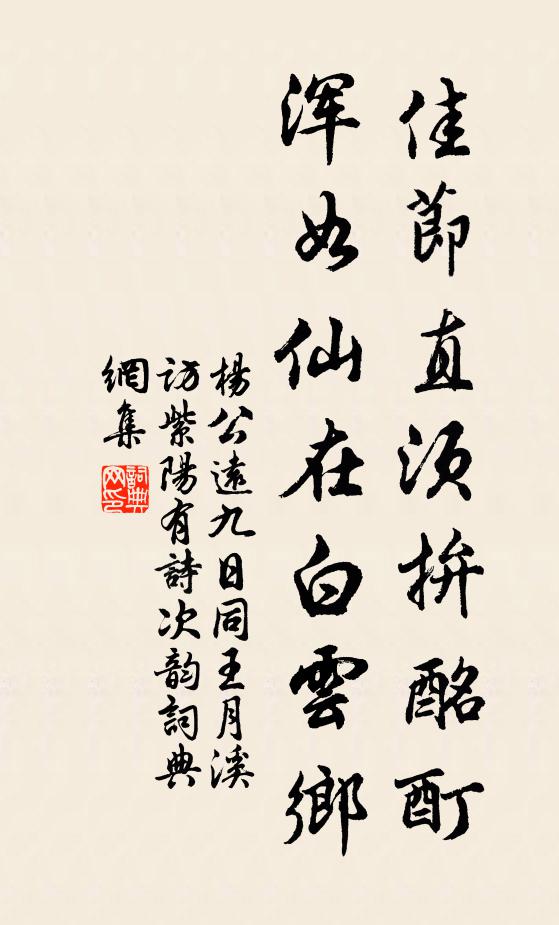 佳節直須拚酩酊
渾如仙在白雲鄉
楊公遠九日同王月溪
訪紫陽有詩次韵詞典
網集
詞典網印